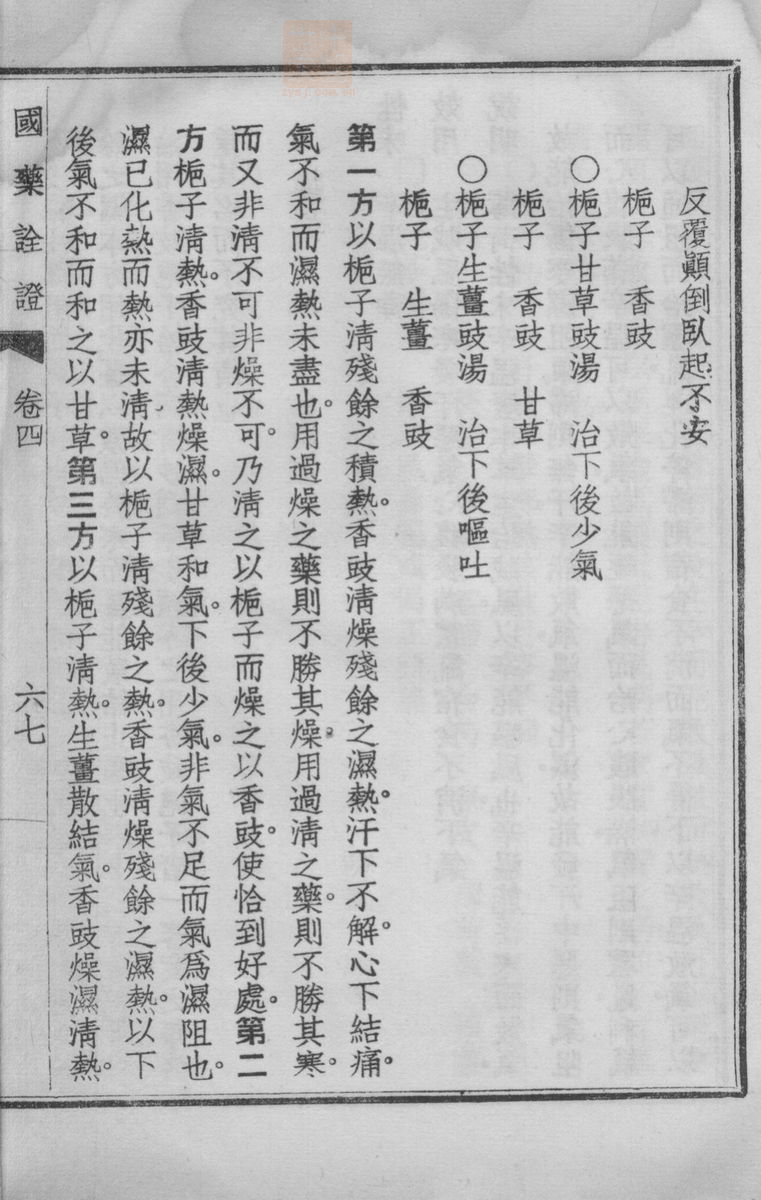 反覆顚倒臥起不安
梔子　香豉
○梔子甘草豉湯　治下後少氣
梔子　香豉　甘草
○梔子生薑豉湯　治下後嘔吐
梔子　生薑　香豉
第一方以梔子淸殘餘之積熱。香豉淸燥殘餘之濕熱。汗下不解。心下結痛。
氣不和而濕熱未盡也。用過燥之藥則不勝其燥。用過淸之藥。則不勝其寒。
而又非淸不可非燥不可。乃淸之以梔子而燥之以香豉。使恰到好處。第二
方梔子淸熱。香豉淸熱燥濕。甘草和氣。下後少氣。非氣不足而氣爲濕阻也。
濕已化熱而熱亦未淸。故以梔子淸殘餘之熱。香豉淸燥殘餘之濕熱。以下
後氣不和而和之以甘草。第三方以梔子淸熱。生薑散結氣。香豉燥濕淸熱。
國藥詮證　卷四　六七